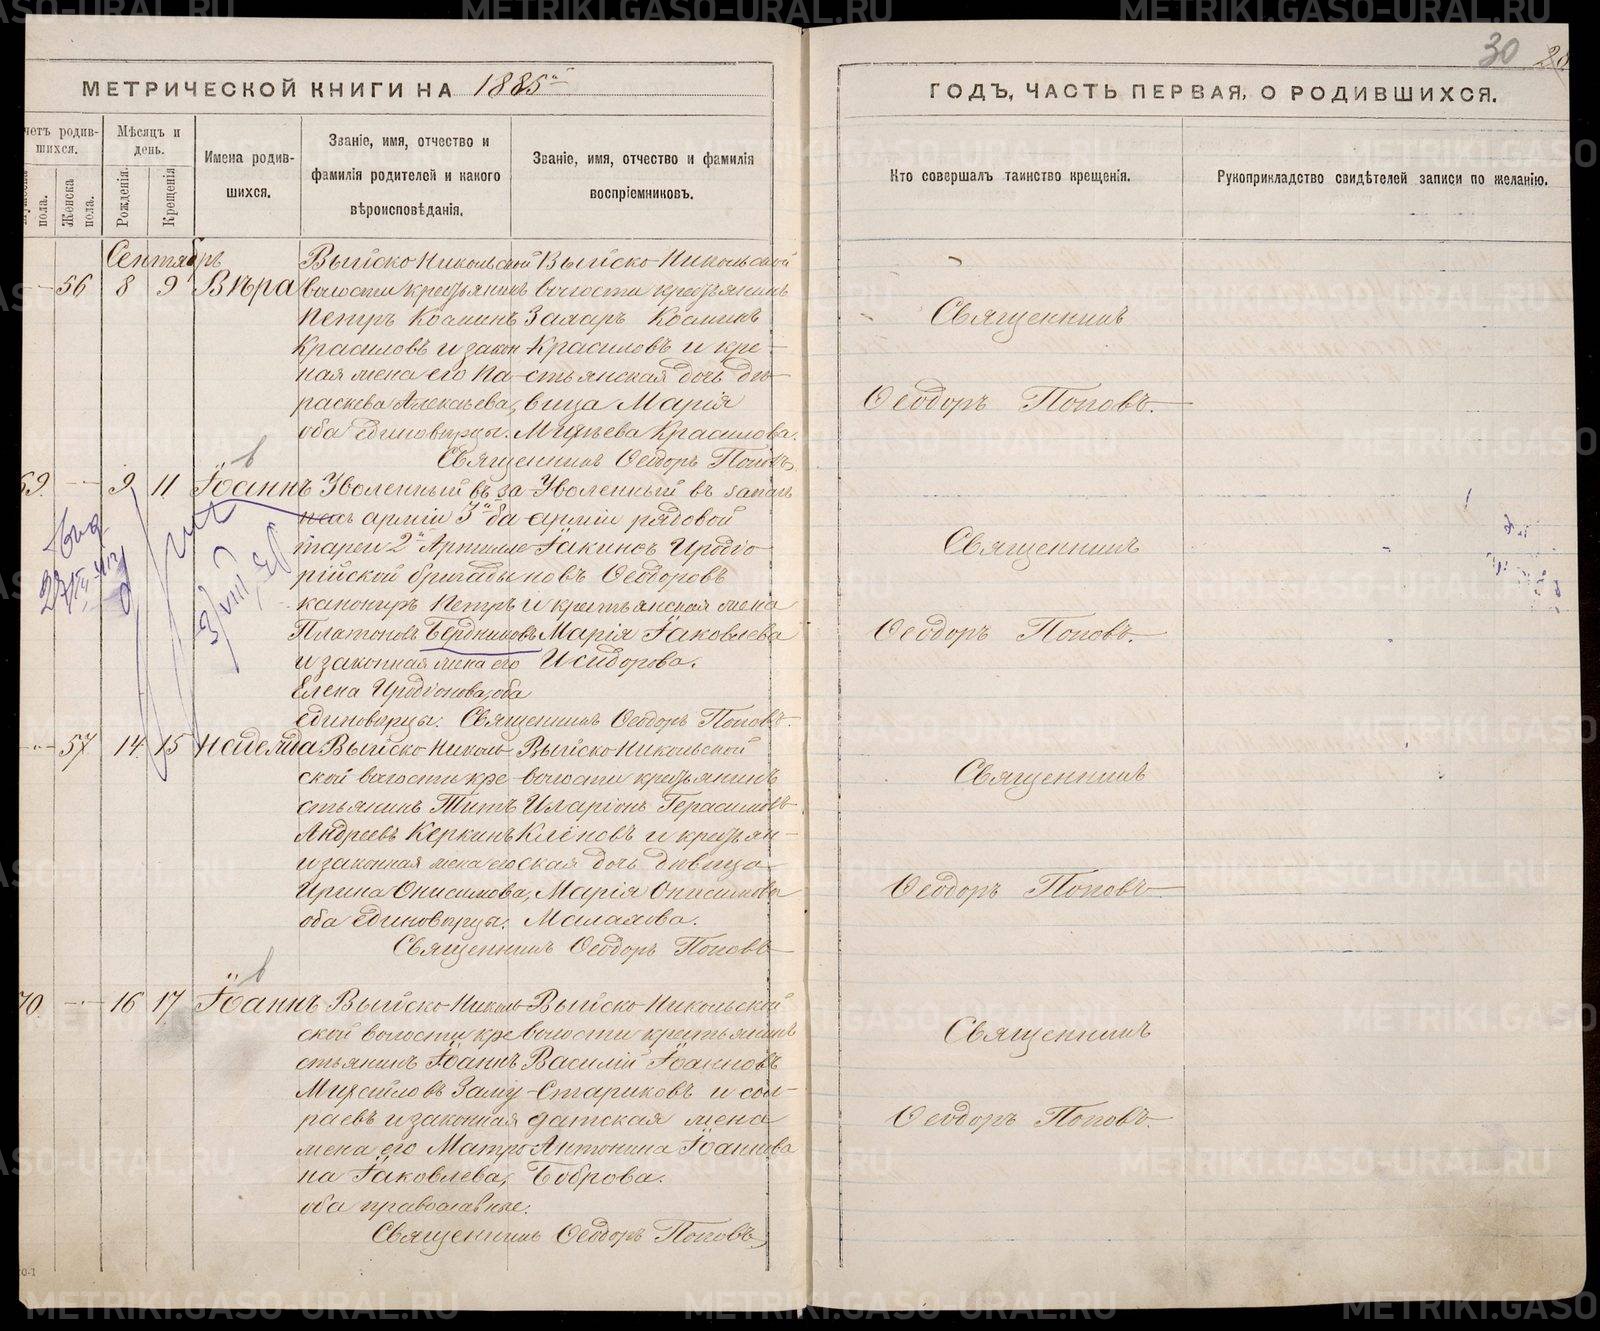 METRIKI.GASO-URAL.RU
30
28
МЕТРИЧЕСКОЙ КНИГИ НА 1885й
ГОДЪ, ЧАСТЬ ПЕРВАЯ, О РОДИВШИХСЯ.
четъ родив-
шихся.
Мѣсяцъ и
день.
пола.
Женска
пола.
Рожденія.
Крещенія
Имена родив-
шихся.
Званіе, имя, отчество и
фамилія родителей и какого
вѣроисповѣданія.
Званіе, имя, отчество и фамилія
воспріемниковъ.
Кто совершалъ таинство крещенія.
Рукоприкладство свидѣтелей записи по желанію.
Сентябрь
56 8 9 Вѣра
Выйско-Никольской
волости крестьянинъ
Петръ Козминъ
Красиловъ и закон
ная жена его Па-
раскева Алексѣева,
оба единовѣрцы.
Выйско-Никольской
волости крестьянинъ
Захаръ Козминъ
Красиловъ и кре-
стьянская дочь дѣ-
вица Марія
Михѣева Красилова.
Священникъ Ѳеодоръ Поповъ
Священникъ
Ѳеодоръ Поповъ.
69. 9 11 Іоаннъ
Уволенный въ за
пасъ арміи 3й ба
тареи 2й Артилле
рійской бригады
канониръ Петръ
Платоновъ Бердниковъ
и законная жена его
Елена Иродіонова, оба
единовѣрцы.
Уволенный въ запасъ
арміи рядовой
Іакинѳъ Иродіо
новъ Ѳеодоровъ
и крестьянская жена
Марія Іаковлева
Исидорова.
Священникъ Ѳеодоръ Поповъ.
Священникъ
Ѳеодоръ Поповъ.
57 14 15 Надежда
Выйско-Николь
ской волости кре
стьянинъ Титъ
Андреевъ Керкинъ
и законная жена его
Ирина Онисимова,
оба единовѣрцы.
Выйско-Никольской
волости крестьянинъ
Иларіонъ Герасимовъ
Клёновъ и крестьян-
ская дочь дѣвица
Марія Онисимова
Малахова.
Священникъ Ѳеодоръ Поповъ
Священникъ
Ѳеодоръ Поповъ
70. 16 17 Іоаннъ
Выйско-Николь
ской волости кре
стьянинъ Іоаннъ
Михайловъ Заму-
раевъ и законная
жена его Матро
на Іаковлева,
оба православные.
Выйско-Никольской
волости крестьянинъ
Василій Іоанновъ
Стариковъ и сол-
датская жена
Антонина Іоаннова
Боброва.
Священникъ Ѳеодоръ Поповъ
Священникъ
Ѳеодоръ Поповъ.